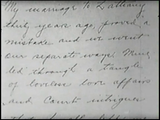 My marriage to Bethany
thirty years ago, proved a
mistake and we went
our separate ways. Mine
led through a tangle
of loveless love affairs
and Court intrigues.